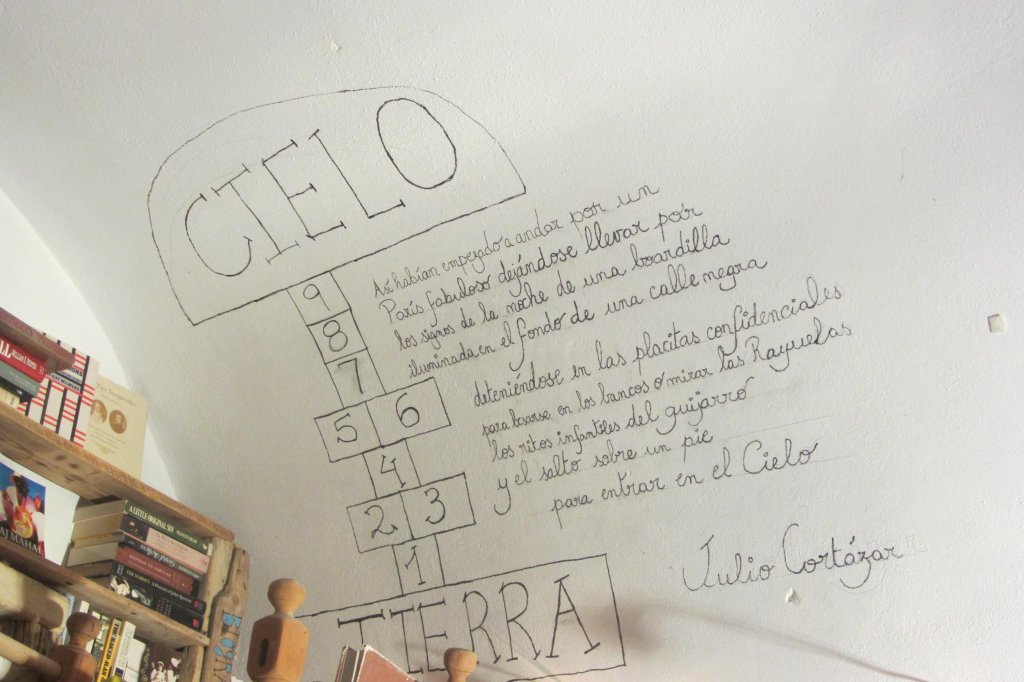 CIELO
9
8
7
5 6
4
2 3
1
TIERRA
Así habían empezado a andar por un
París fabuloso dejándose llevar por
los signos de la noche de una boardilla
iluminada en el fondo de una calle negra
deteniéndose en las placitas confidenciales
para besarse en los bancos o mirar las Rayuelas
los ritos infantiles del guijarro
y el salto sobre un pie
para entrar en el Cielo
Julio Cortázar
A LITTLE ORIGINAL SIN
AJ MAHAL